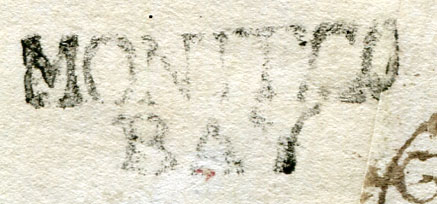 MONITGO
BAY